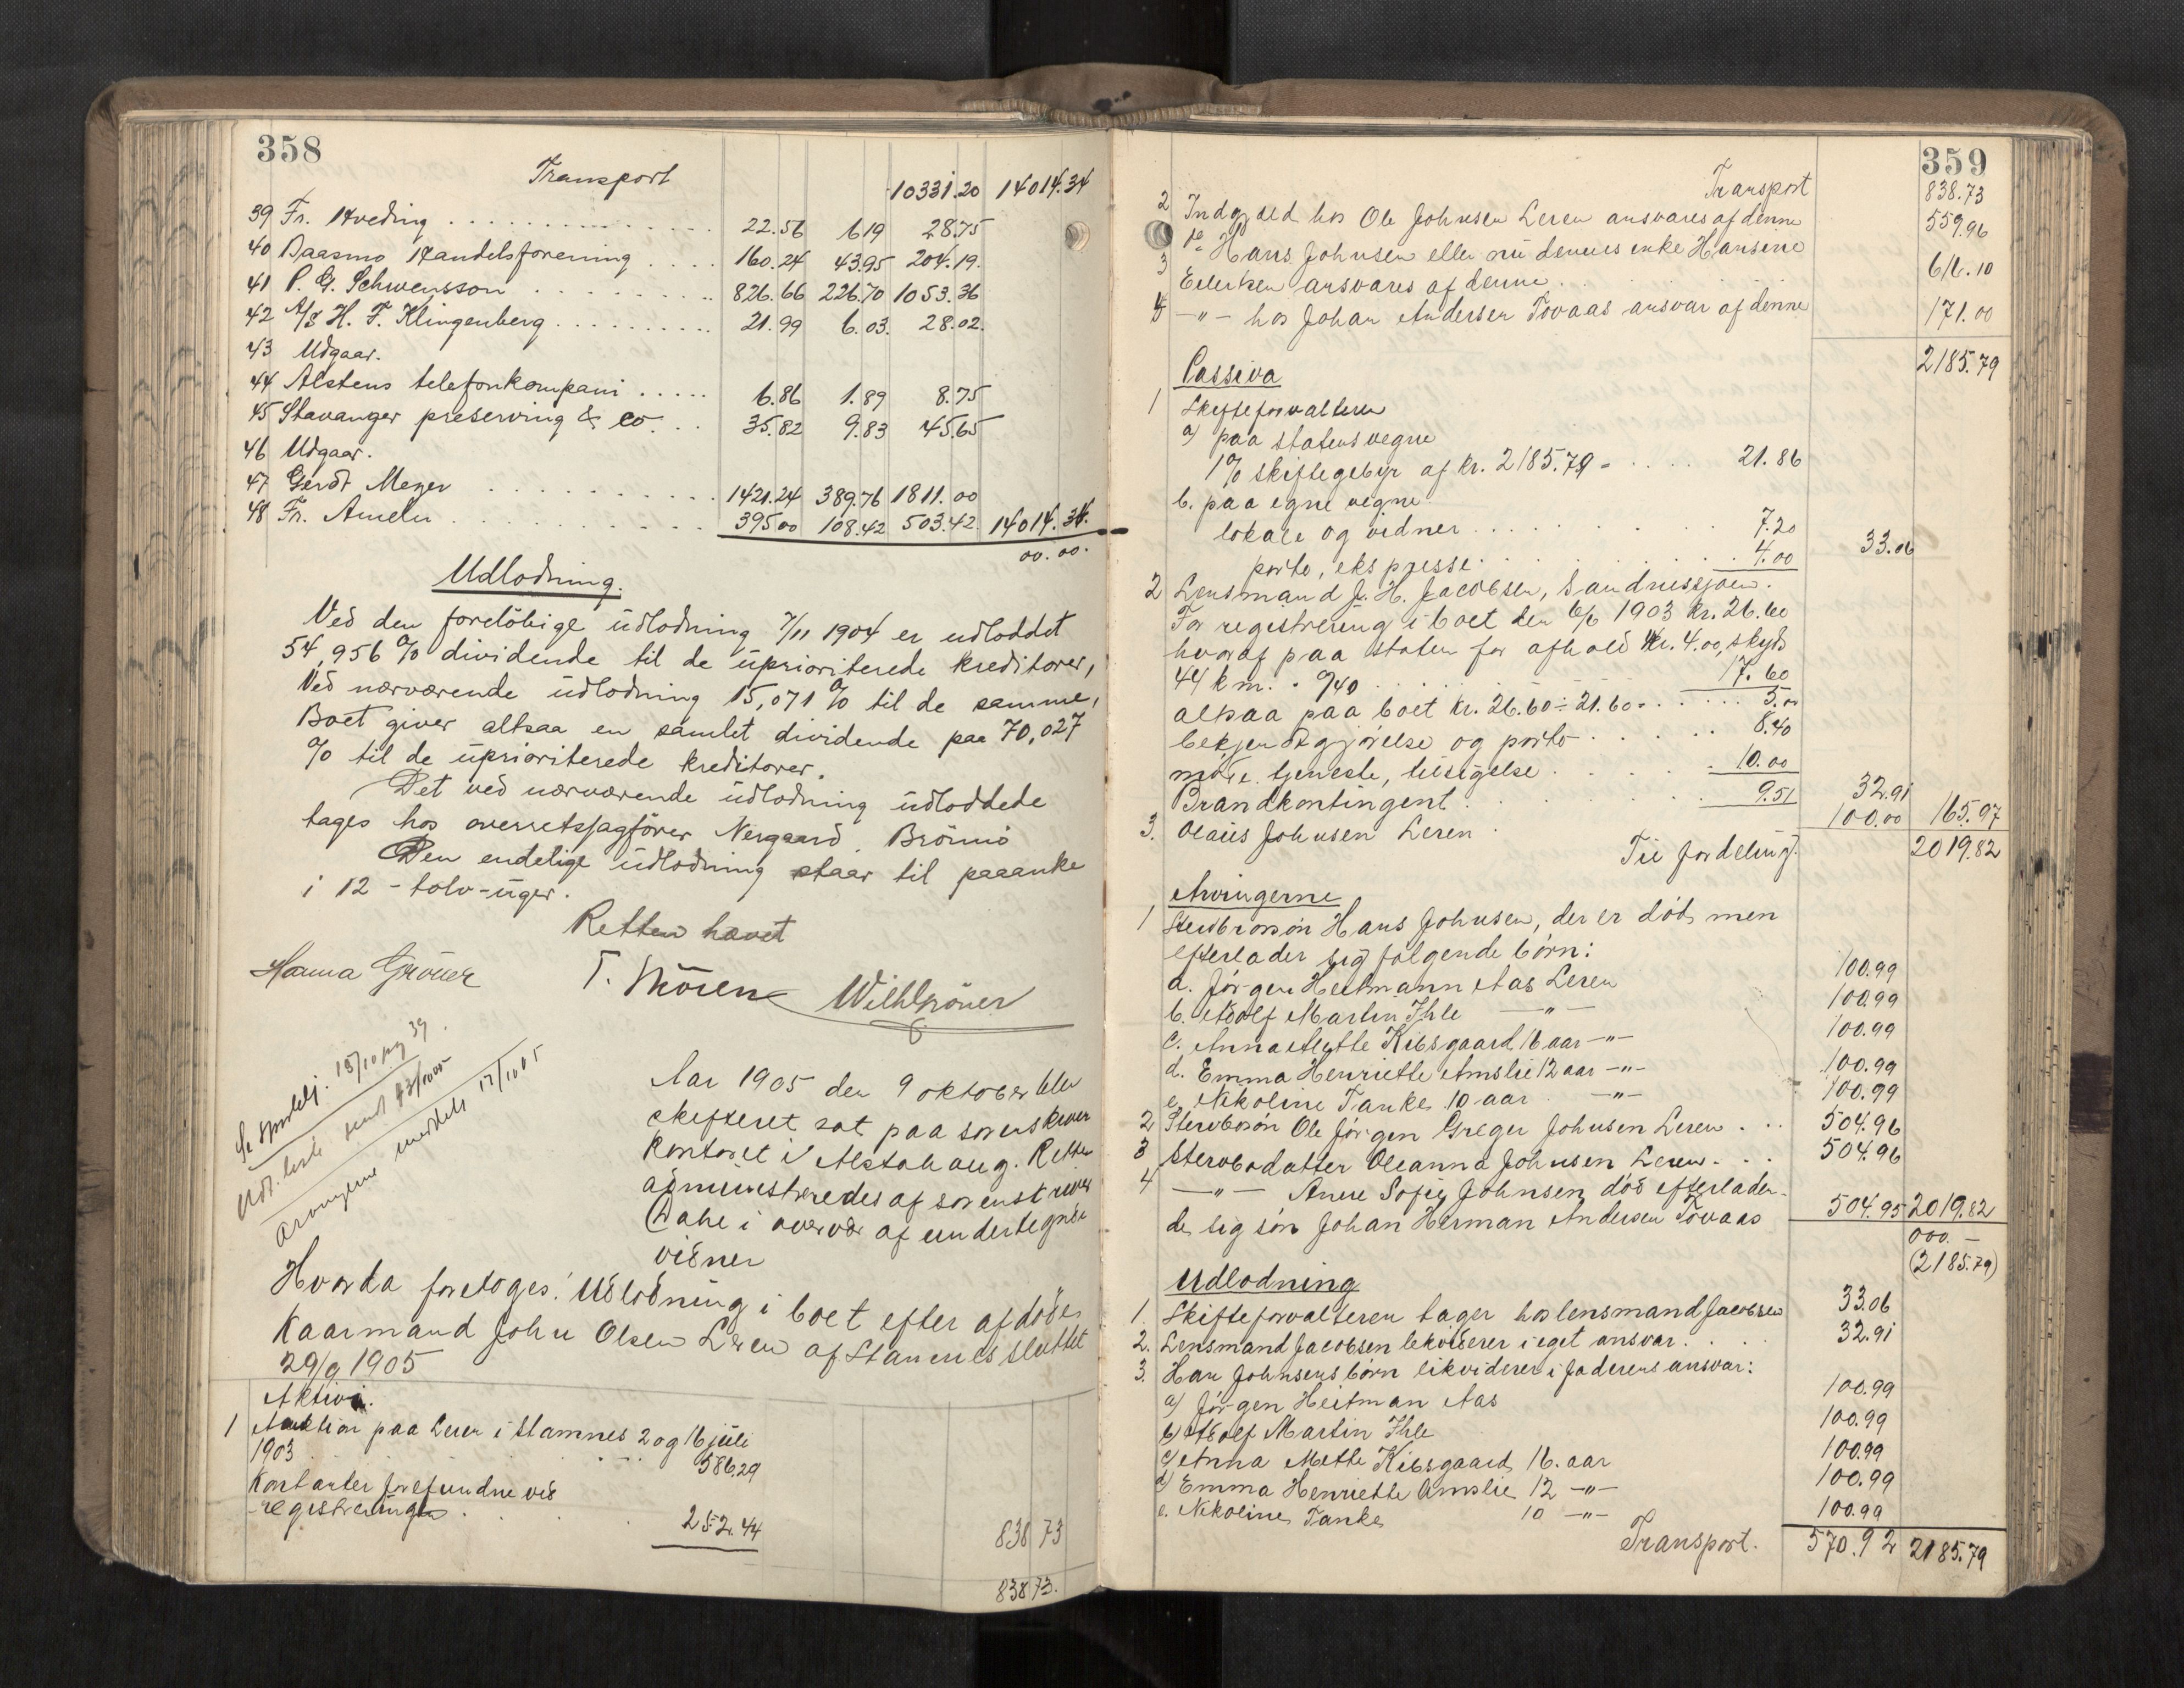 358
Transport 10331.20 14014.34
39 Fr. Hveding 22.56 6 19 28.75
40 Baasmo Handelsforening 160.24 43.95 204.19.
41 P. G. Schwensson 826.66 226.70 1053.36
42 A/S H. F. Klingenberg 21.99 6.03. 28.02.
43 Udgaar.
44 Alstens telefonkompani 6.86 1.89 8.75
45 Stavanger preserving & co. 35.82 9.83 45.65
46 Udgaar.
47 Gerdt Meyer 1421.24 389.76 1811.00
48 Fr. Ameln 395.00 108.42 503.42. 14014.34.
00.00.
Udlodning.
Ved den foreløbige udlodning 7/11 1904 er udloddet
54,956 % dividende til de uprioriterede kreditorer,
Ved nærværende udlodning 15,071 % til de samme,
Boet giver altsaa en samlet dividende paa 70,027
% til de uprioriterede kreditorer.
Det ved nærværende udlodning udloddede
tages hos overretssagfører Nergaard. Brönnö
Den endelige udlodning staar til paaanke
i 12 - tolv - uger.
Retten hævet
Hanna Gröner
Wilh Gröner
Aar 1905 den 9 oktober blev
skifteret sat paa sorenskriver
kontoret i Alstahaug. Retten
administreredes af sorenskriver
Dahl i overvær af undertegnede
vidner
Hvorda foretoges: Udlodning i boet efter afdøde
Kaarmand John Olsen Leren af Stamnes sluttet
29/9 1905
Aktiva.
1 Auktion paa Leren i Stamnes 2 og 16 juli
1903 586.29
Kontanter forefundne ved
registreringen 252.44 838 73
838 73.
359
Transport 838.73
2 Indgjæld hos Ole Johnsen Leren ansvares af denne 559.96
3 do Hans Johnsen eller nu dennes enke Hansine
Eilertsen ansvares af denne 616.10
4 -"- hos Johan Andersen Tovaas ansvar af denne 171.00
2185.79
Passiva
1 Skifteforvalteren
a) paa statens vegne
1% skiftegebyr af kr. 2185.79 = 21.86
b. paa egne vegne
lokale og vidner 7.20
porto, ekspresse 4.00 33.06
2 Lensmand J. H. Jacobsen, Sandnessjøen.
For registrering i boet den 6/6 1903 kr. 26.60
hvoraf paa staten for ophold kr. 4.00, skyds
44 km. 0/40 17.60
altsaa paa boet kr. 26.60 ÷ 21.60 = 5.00
bekjendtgjørelse og porto 8.40
møde, tjeneste, tilsigelse 10.00
Brandkontingent 9.51 32.91
3. Olaus Johnsen Leren 100.00 165.97
Til fordeling. 2019.82
Arvingerne
1 Stervbosøn Hans Johnsen, der er død, men
efterlader sig følgende børn:
a. Jørgen Heitmann Aas Leren 100.99
b. Adolf Martin Ihle -"- 100.99
c. Anna Mette Kibsgaard 16 aar -"- 100.99
d. Emma Henriette Amslie 12 aar -"- 100.99
e. Nikoline Tanke 10 aar -"- 100.99
2 Stervbosøn Ole Jørgen Greger Johnsen Leren 504.96
3 Stervbodatter Oleanna Johnsen Leren 504.96
4 -"- Anne Sofie Johnsen, død efterladen-
de sig søn Johan Herman Andersen Tovaas 504.95 2019.82
000.—
(2185.79)
Udlodning
1. Skifteforvalteren tager hos lensmand Jacobsen 33.06
2. Lensmand Jacobsen likviderer i eget ansvar 32.91
3. Hans Johnsens børn likviderer i faderens ansvar:
a) Jørgen Heitman Aas 100.99
b) Adolf Martin Ihle 100.99
c) Anna Mette Kibsgaard, 16. aar 100.99
d) Emma Henriette Amslie 12 -"- 100.99
e. Nikoline Tanke 10 -"- 100.99
Transport. 570.92 2185.79